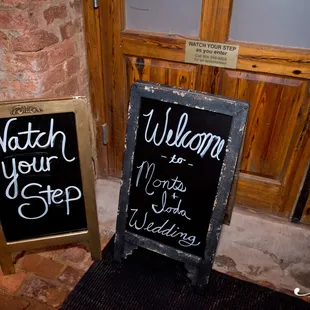 WATCH YOUR STEP
as you enter
Watch
your
Step
Welcome
- to -
Monts
+
Joda
Wedding